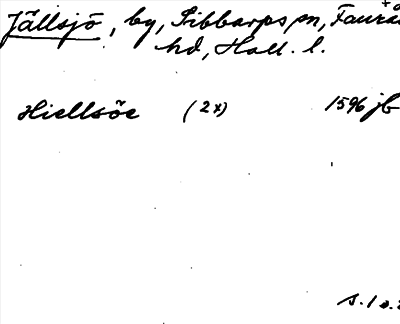 Jällsjö, by, Sibbarps sn, Faurås
hd, Hall. l.
Hiellsöe (2x) 1596 jb
s. 1 a.